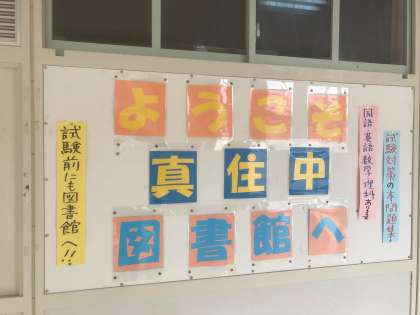 ようこそ
真住中
図書館へ
試験前にも図書館へ!!
試験対策の本問題集
国語・英語・数学・理科あります